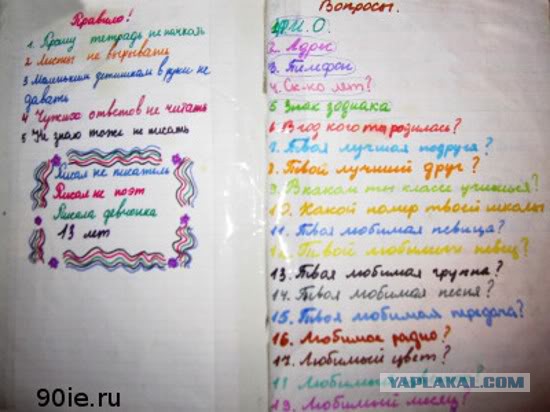 Правило!
1. Прошу тетрадь не пачкать
2 Листы не вырывать
3 Маленьким детишкам в руки не
давать
4 Чужих ответов не читать
5 Не знаю тоже не писать
Писал не писатель
Писал не поэт
Писала девчонка
13 лет
Вопросы.
1 Ф.И.О.
2. Адрес
3. Телефон
4 Ск-ко лет?
5 Знак зодиака
6. В год кого ты родилась?
7 Твоя лучшая подруга?
8. Твой лучший друг?
9 В каком ты классе учишься?
10. Какой номер твоей школы
11. Твоя любимая певица?
12. Твой любимый певец?
13. Твоя любимая группа?
14. Твоя любимая песня?
15. Твоя любимая передача?
16. Любимое радио?
17. Любимый цвет?
Любимый
19. Любимый месяц?
90ie.ru
YAPLAKAL.COM